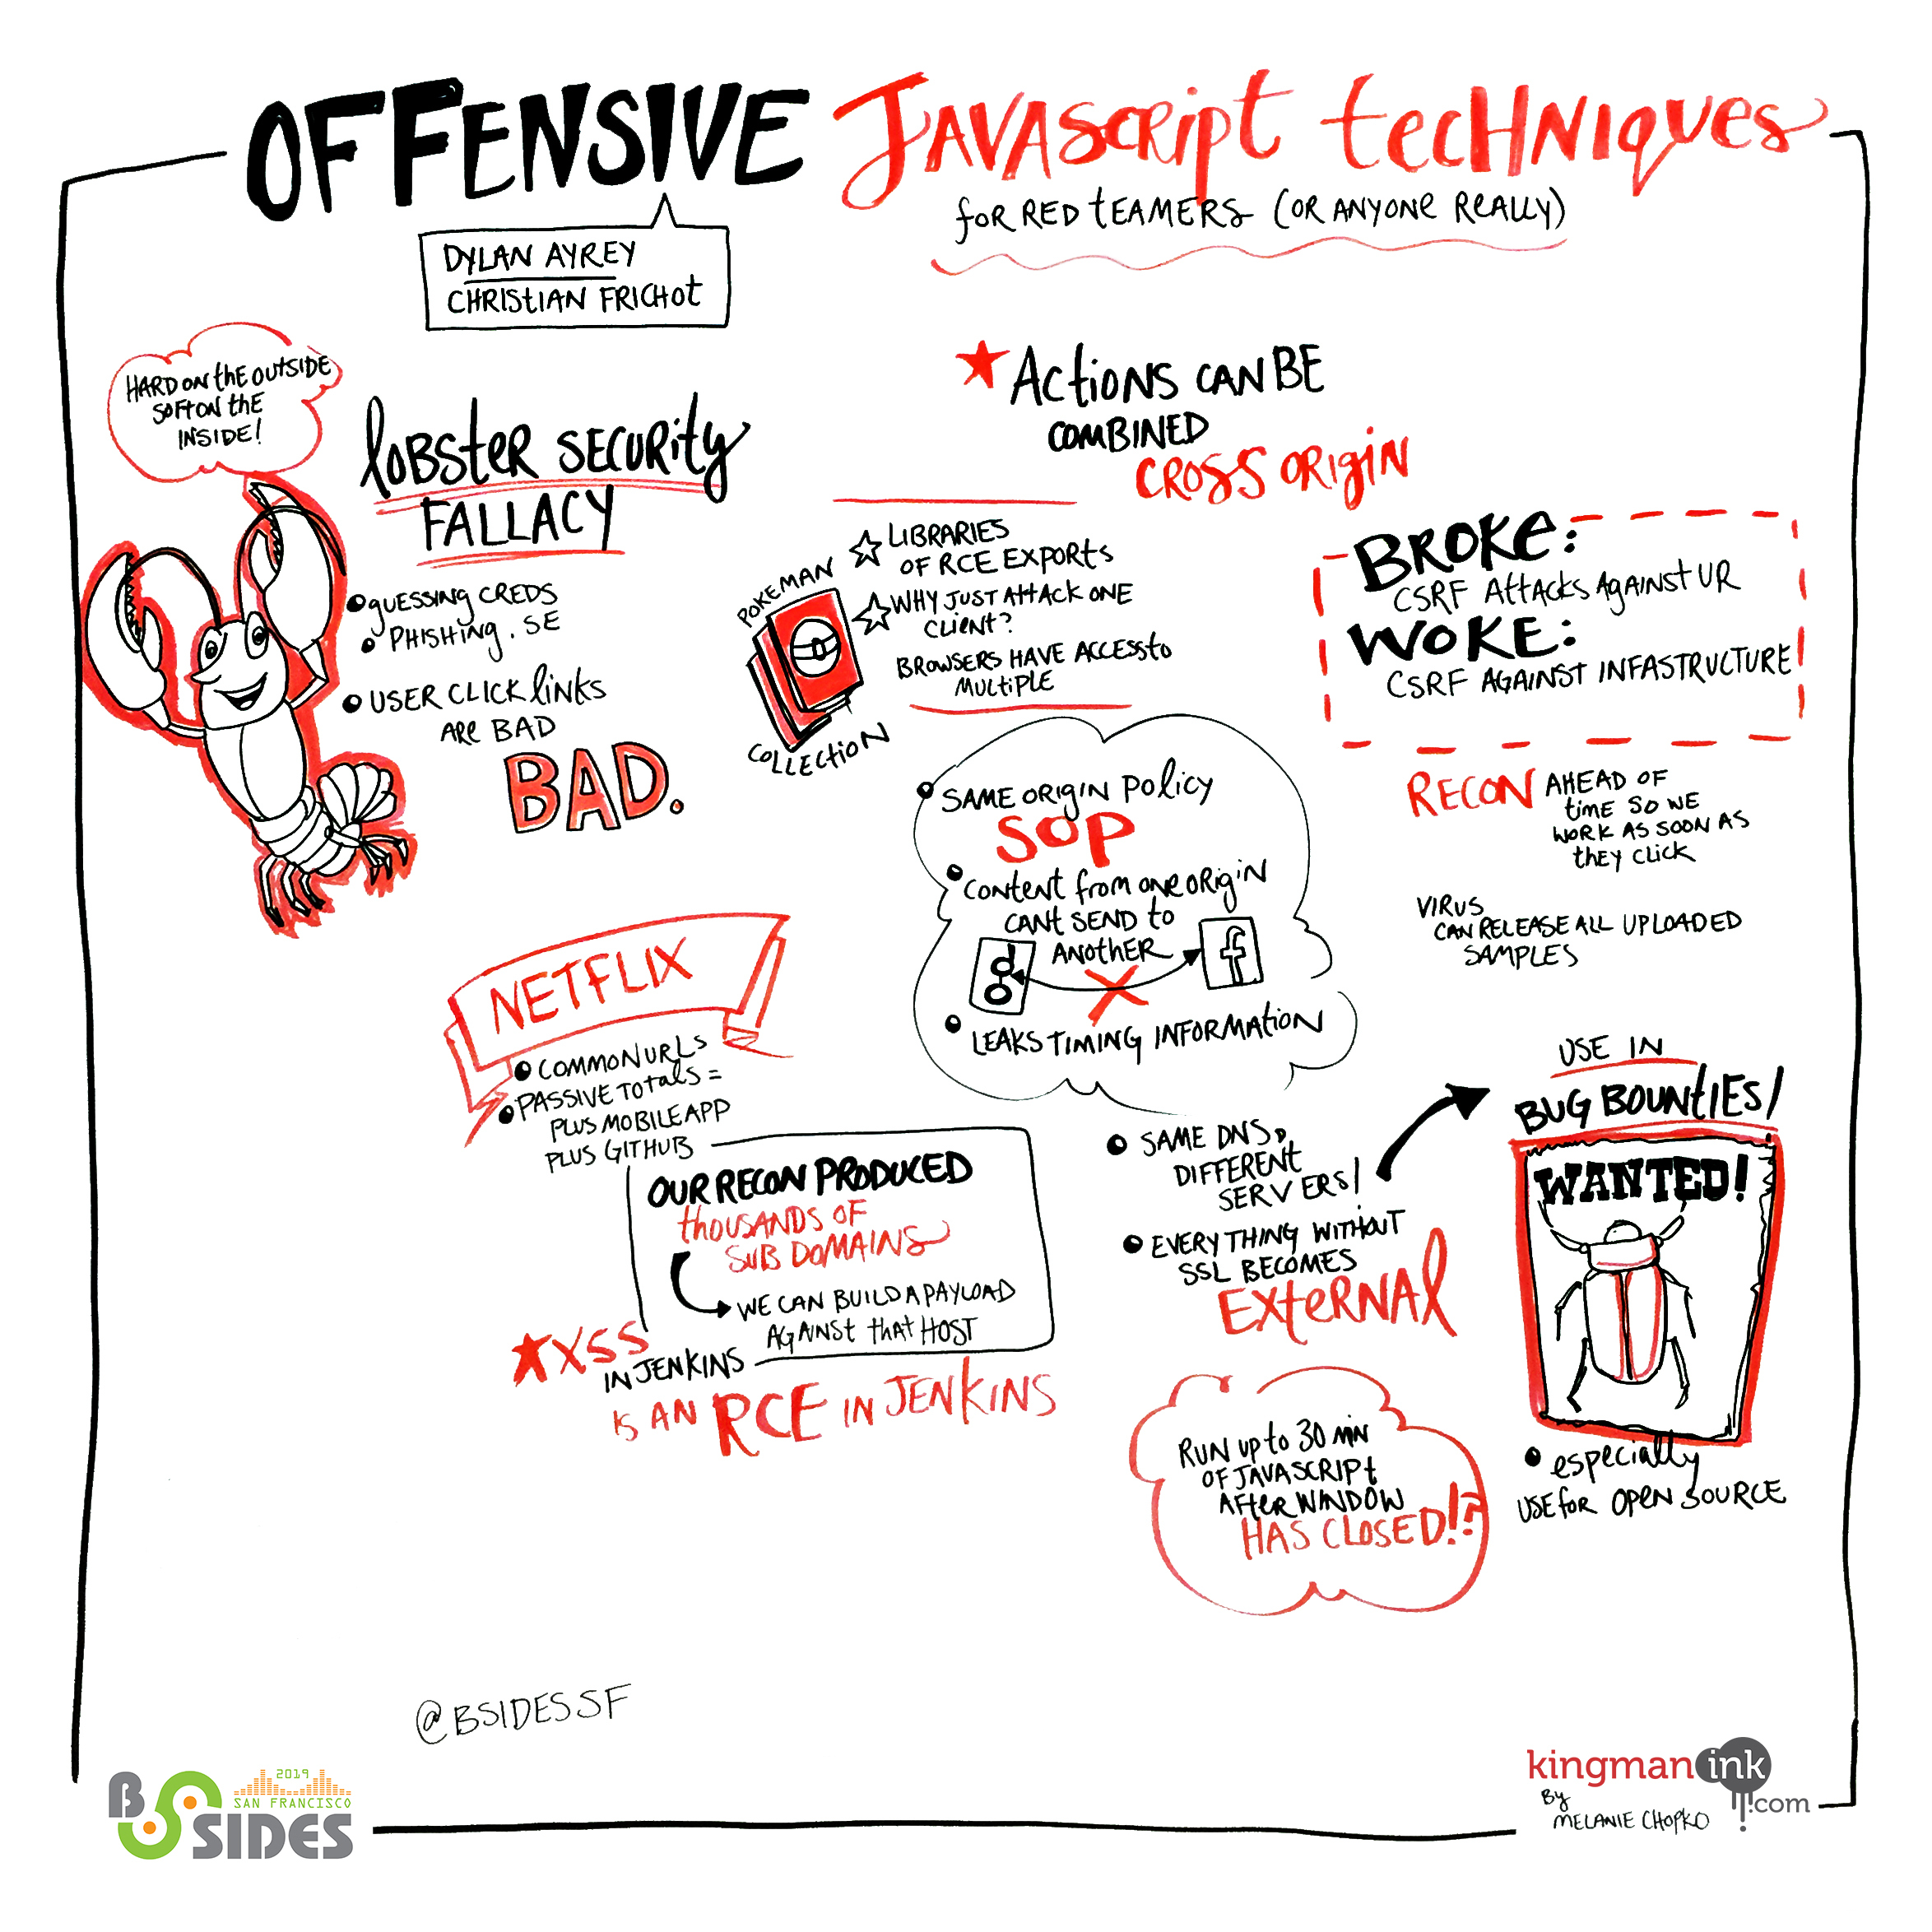 OFFENSIVE JAVASCRIPT TECHNIQUES
FOR RED TEAMERS (OR ANYONE REALLY)
DYLAN AYREY
CHRISTIAN FRICHOT
HARD ON THE OUTSIDE
SOFT ON THE
INSIDE!
LOBSTER SECURITY
FALLACY
GUESSING CREDS
PHISHING. SE
USER CLICK LINKS
ARE BAD
BAD.
ACTIONS CAN BE
COMBINED
CROSS ORIGIN
POKEMAN
COLLECTION
LIBRARIES
OF RCE EXPORTS
WHY JUST ATTACK ONE
CLIENT?
BROWSERS HAVE ACCESS TO
MULTIPLE
BROKE:
CSRF ATTACKS AGAINST UR
WOKE:
CSRF AGAINST INFASTRUCTURE!
RECON AHEAD OF
TIME SO WE
WORK AS SOON AS
THEY CLICK
VIRUS
CAN RELEASE ALL UPLOADED
SAMPLES
SAME ORIGIN POLICY
SOP
CONTENT FROM ONE ORIGIN
CANT SEND TO
ANOTHER
g
f
LEAKS TIMING INFORMATION
NETFLIX
COMMON URLS
PASSIVE TOTALS =
PLUS MOBILE APP
PLUS GITHUB
OUR RECON PRODUCED
THOUSANDS OF
SUB DOMAINS
WE CAN BUILD A PAYLOAD
AGAINST THAT HOST
XSS
IN JENKINS
IS AN RCE IN JENKINS
SAME DNS,
DIFFERENT
SERVERS!
EVERYTHING WITHOUT
SSL BECOMES
EXTERNAL
USE IN
BUG BOUNTIES!
WANTED!
ESPECIALLY
USE FOR OPEN SOURCE
RUN UP TO 30 MIN
OF JAVASCRIPT
AFTER WINDOW
HAS CLOSED!?
@BSIDESSF
B SIDES
2019
SAN FRANCISCO
kingman ink
.com
BY
MELANIE CHOPKO